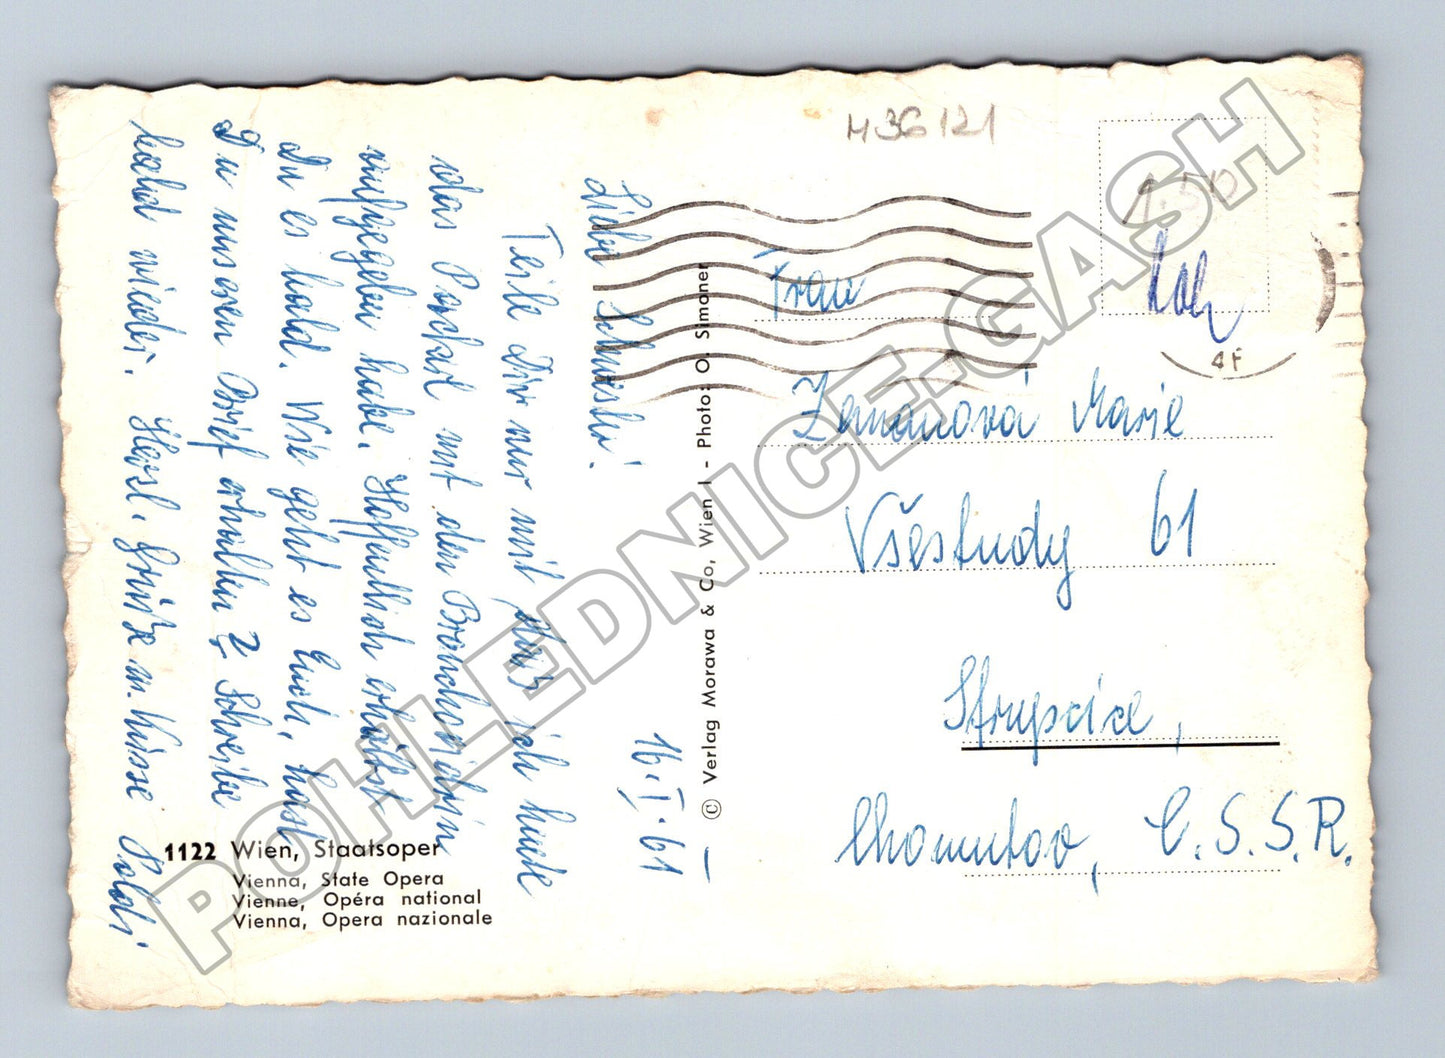 16. I. 61
Liebe Schwester!
Teile Dir nur mit, daß ich heute
das Packet mit den
aufgegeben habe. Hoffentlich erhältst
Du es bald. Wie geht es Euch, hast
Du unseren Brief erhalten? Schreibe
bald wieder. Herzl. Grüße u. Küsse Poldi
1122 Wien, Staatsoper
Vienna, State Opera
Vienne, Opéra national
Vienna, Opera nazionale
© Verlag Morawa & Co, Wien I - Photo: O. Simoner
H36121
1.50
4F
Frau
Zemanová Marie
Všestudy 61
Strupčice,
Chomutov, Č.S.S.R.
POHLEDNICE-GASH